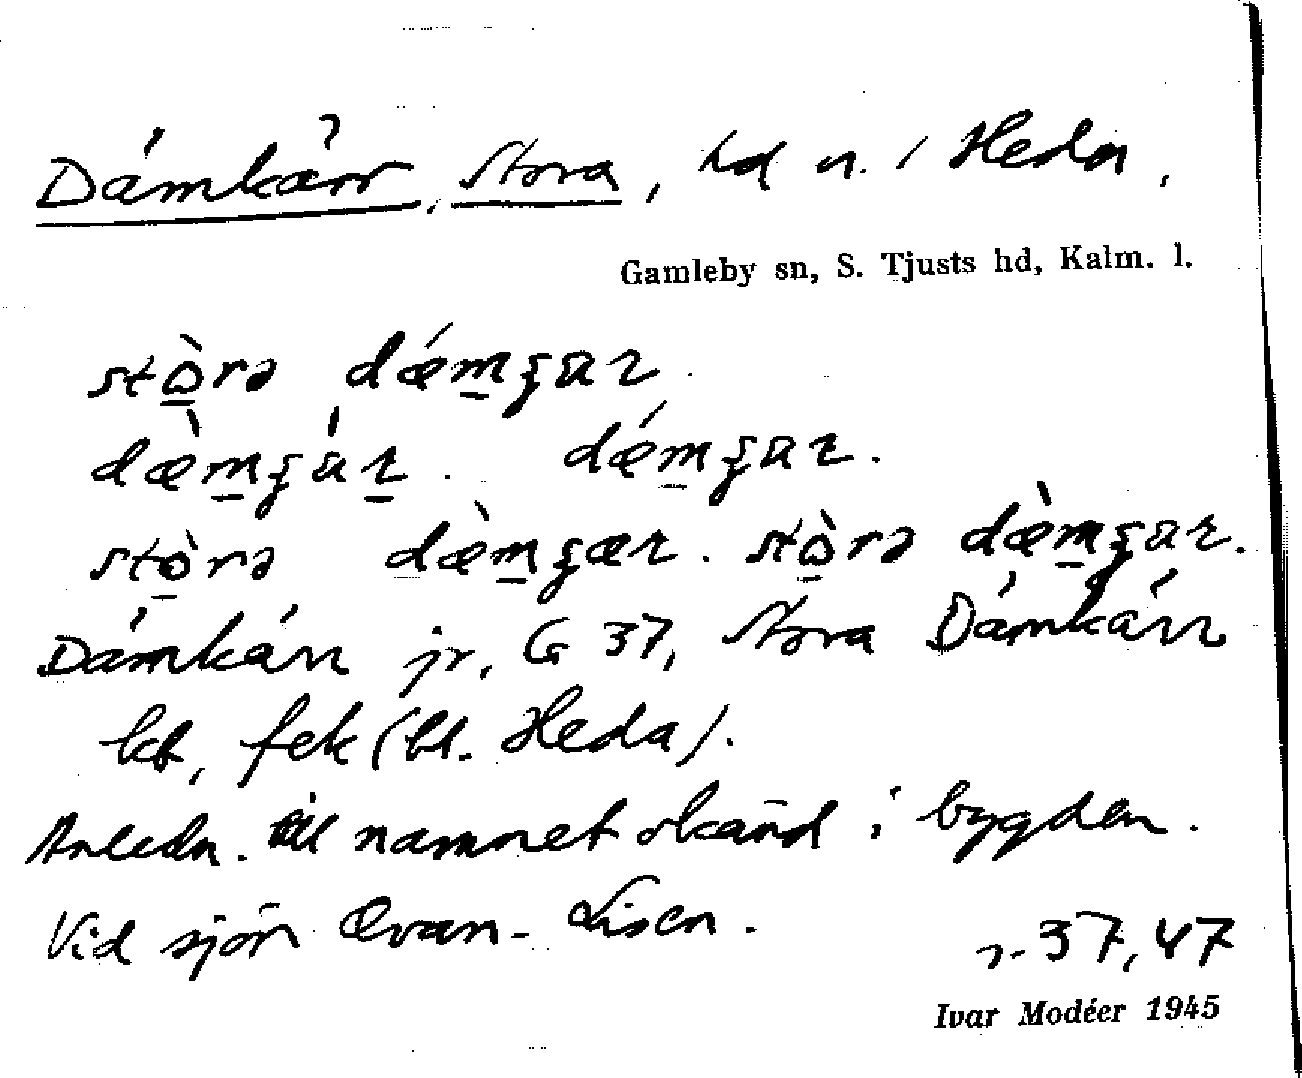 Dámkärr, Stora, hd n. / Heda,
Gamleby sn, S. Tjusts hd, Kalm. l.
stòrə dǽmɕar.
dæ̀mɕár. dǽmɕar.
stòrə dæ̀mɕær. stòrə dæ̀mɕar.
Dámkárr jr, G 37, Stora Dámkárr
kt, fek (bl. Heda).
Anledn. till namnet okänd i bygden.
Vid sjön Ovan-Lisen.
37, 47
Ivar Modéer 1945